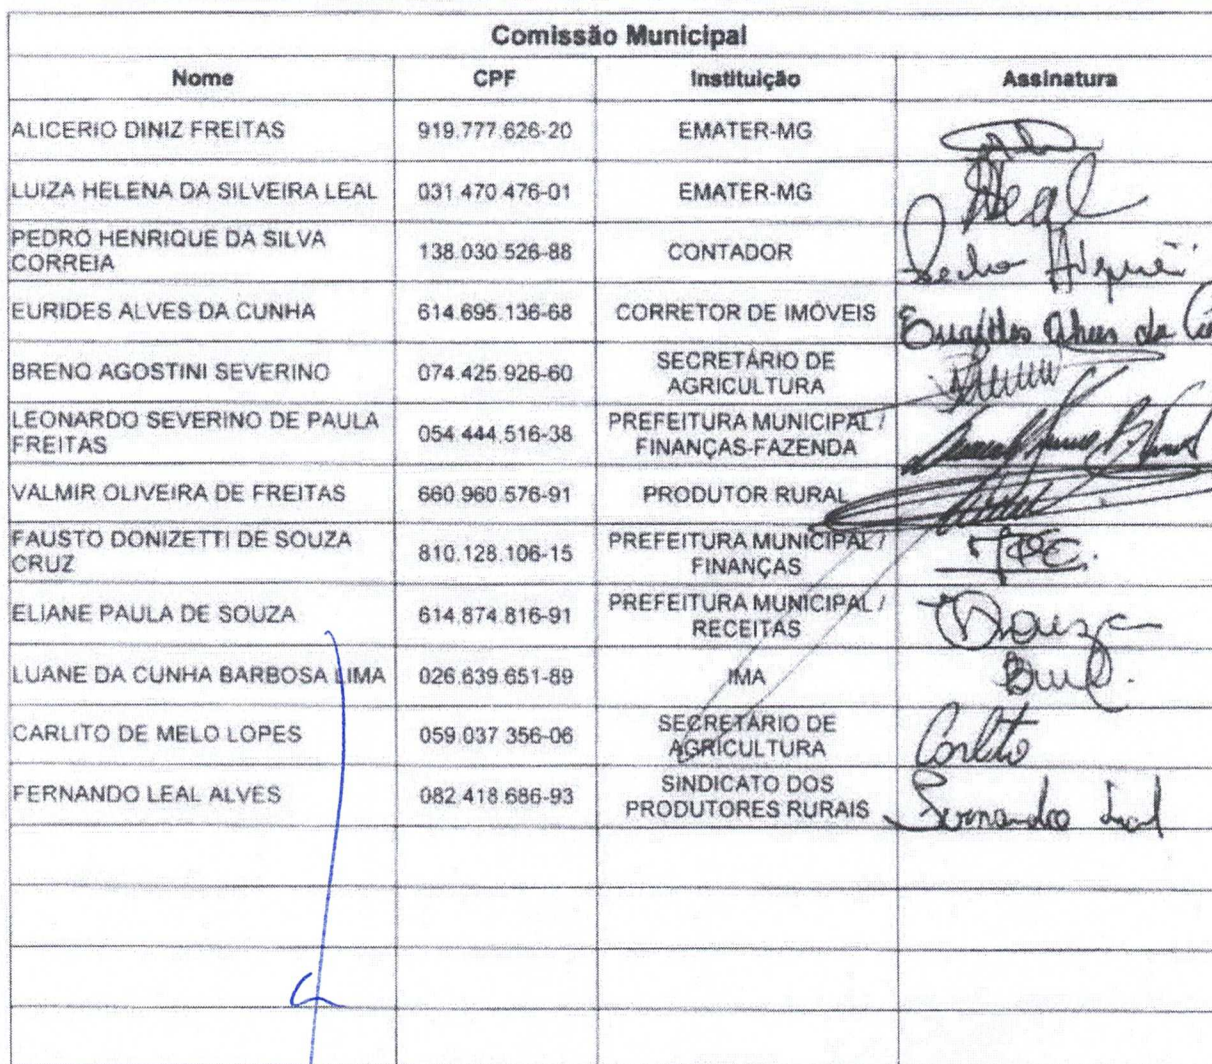 Comissão Municipal
Nome CPF Instituição Assinatura
ALICERIO DINIZ FREITAS 919.777.626-20 EMATER-MG
LUIZA HELENA DA SILVEIRA LEAL 031.470.476-01 EMATER-MG Leal
PEDRO HENRIQUE DA SILVA
CORREIA 138.030.526-88 CONTADOR Pedro Henrique
EURIDES ALVES DA CUNHA 614.695.136-68 CORRETOR DE IMÓVEIS Eurides Alves da
BRENO AGOSTINI SEVERINO 074.425.926-60 SECRETÁRIO DE
AGRICULTURA
LEONARDO SEVERINO DE PAULA
FREITAS 054.444.516-38 PREFEITURA MUNICIPAL /
FINANÇAS-FAZENDA
VALMIR OLIVEIRA DE FREITAS 660.960.576-91 PRODUTOR RURAL
FAUSTO DONIZETTI DE SOUZA
CRUZ 810.128.106-15 PREFEITURA MUNICIPAL /
FINANÇAS
ELIANE PAULA DE SOUZA 614.874.816-91 PREFEITURA MUNICIPAL /
RECEITAS Souza
LUANE DA CUNHA BARBOSA LIMA 026.639.651-89 IMA
CARLITO DE MELO LOPES 059.037.356-06 SECRETÁRIO DE
AGRICULTURA Carlito
FERNANDO LEAL ALVES 082.418.686-93 SINDICATO DOS
PRODUTORES RURAIS Fernando Leal